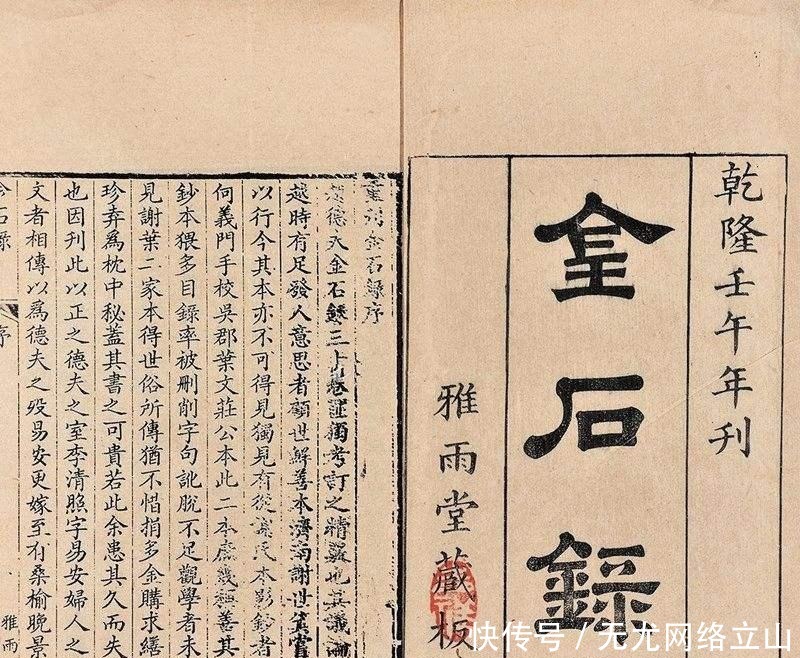 乾隆壬午年刊
金石錄
雅雨堂藏板
重刊金石錄序
趙德夫金石錄三十卷匪獨考訂之精覈也其議論
越時有足發人意思者顧世鮮善本濟南謝世箕嘗
以行今其本亦不可得見獨見有從氏本影鈔者
何義門手校吳郡葉文莊公本此二本庶幾稱善其
鈔本猥多目錄率被刪削字句訛脫不足觀學者未
見謝葉二家本得世俗所傳猶不惜捐多金購求繕
珍弆爲枕中秘蓋其書之可貴若此余患其久而失
也因刊此以正之德夫之室李清照字易安婦人之
文者相傳以爲德夫之歿易安更嫁至有桑榆晚景
金石錄 序 雅雨
快传号 / 无尤网络立山